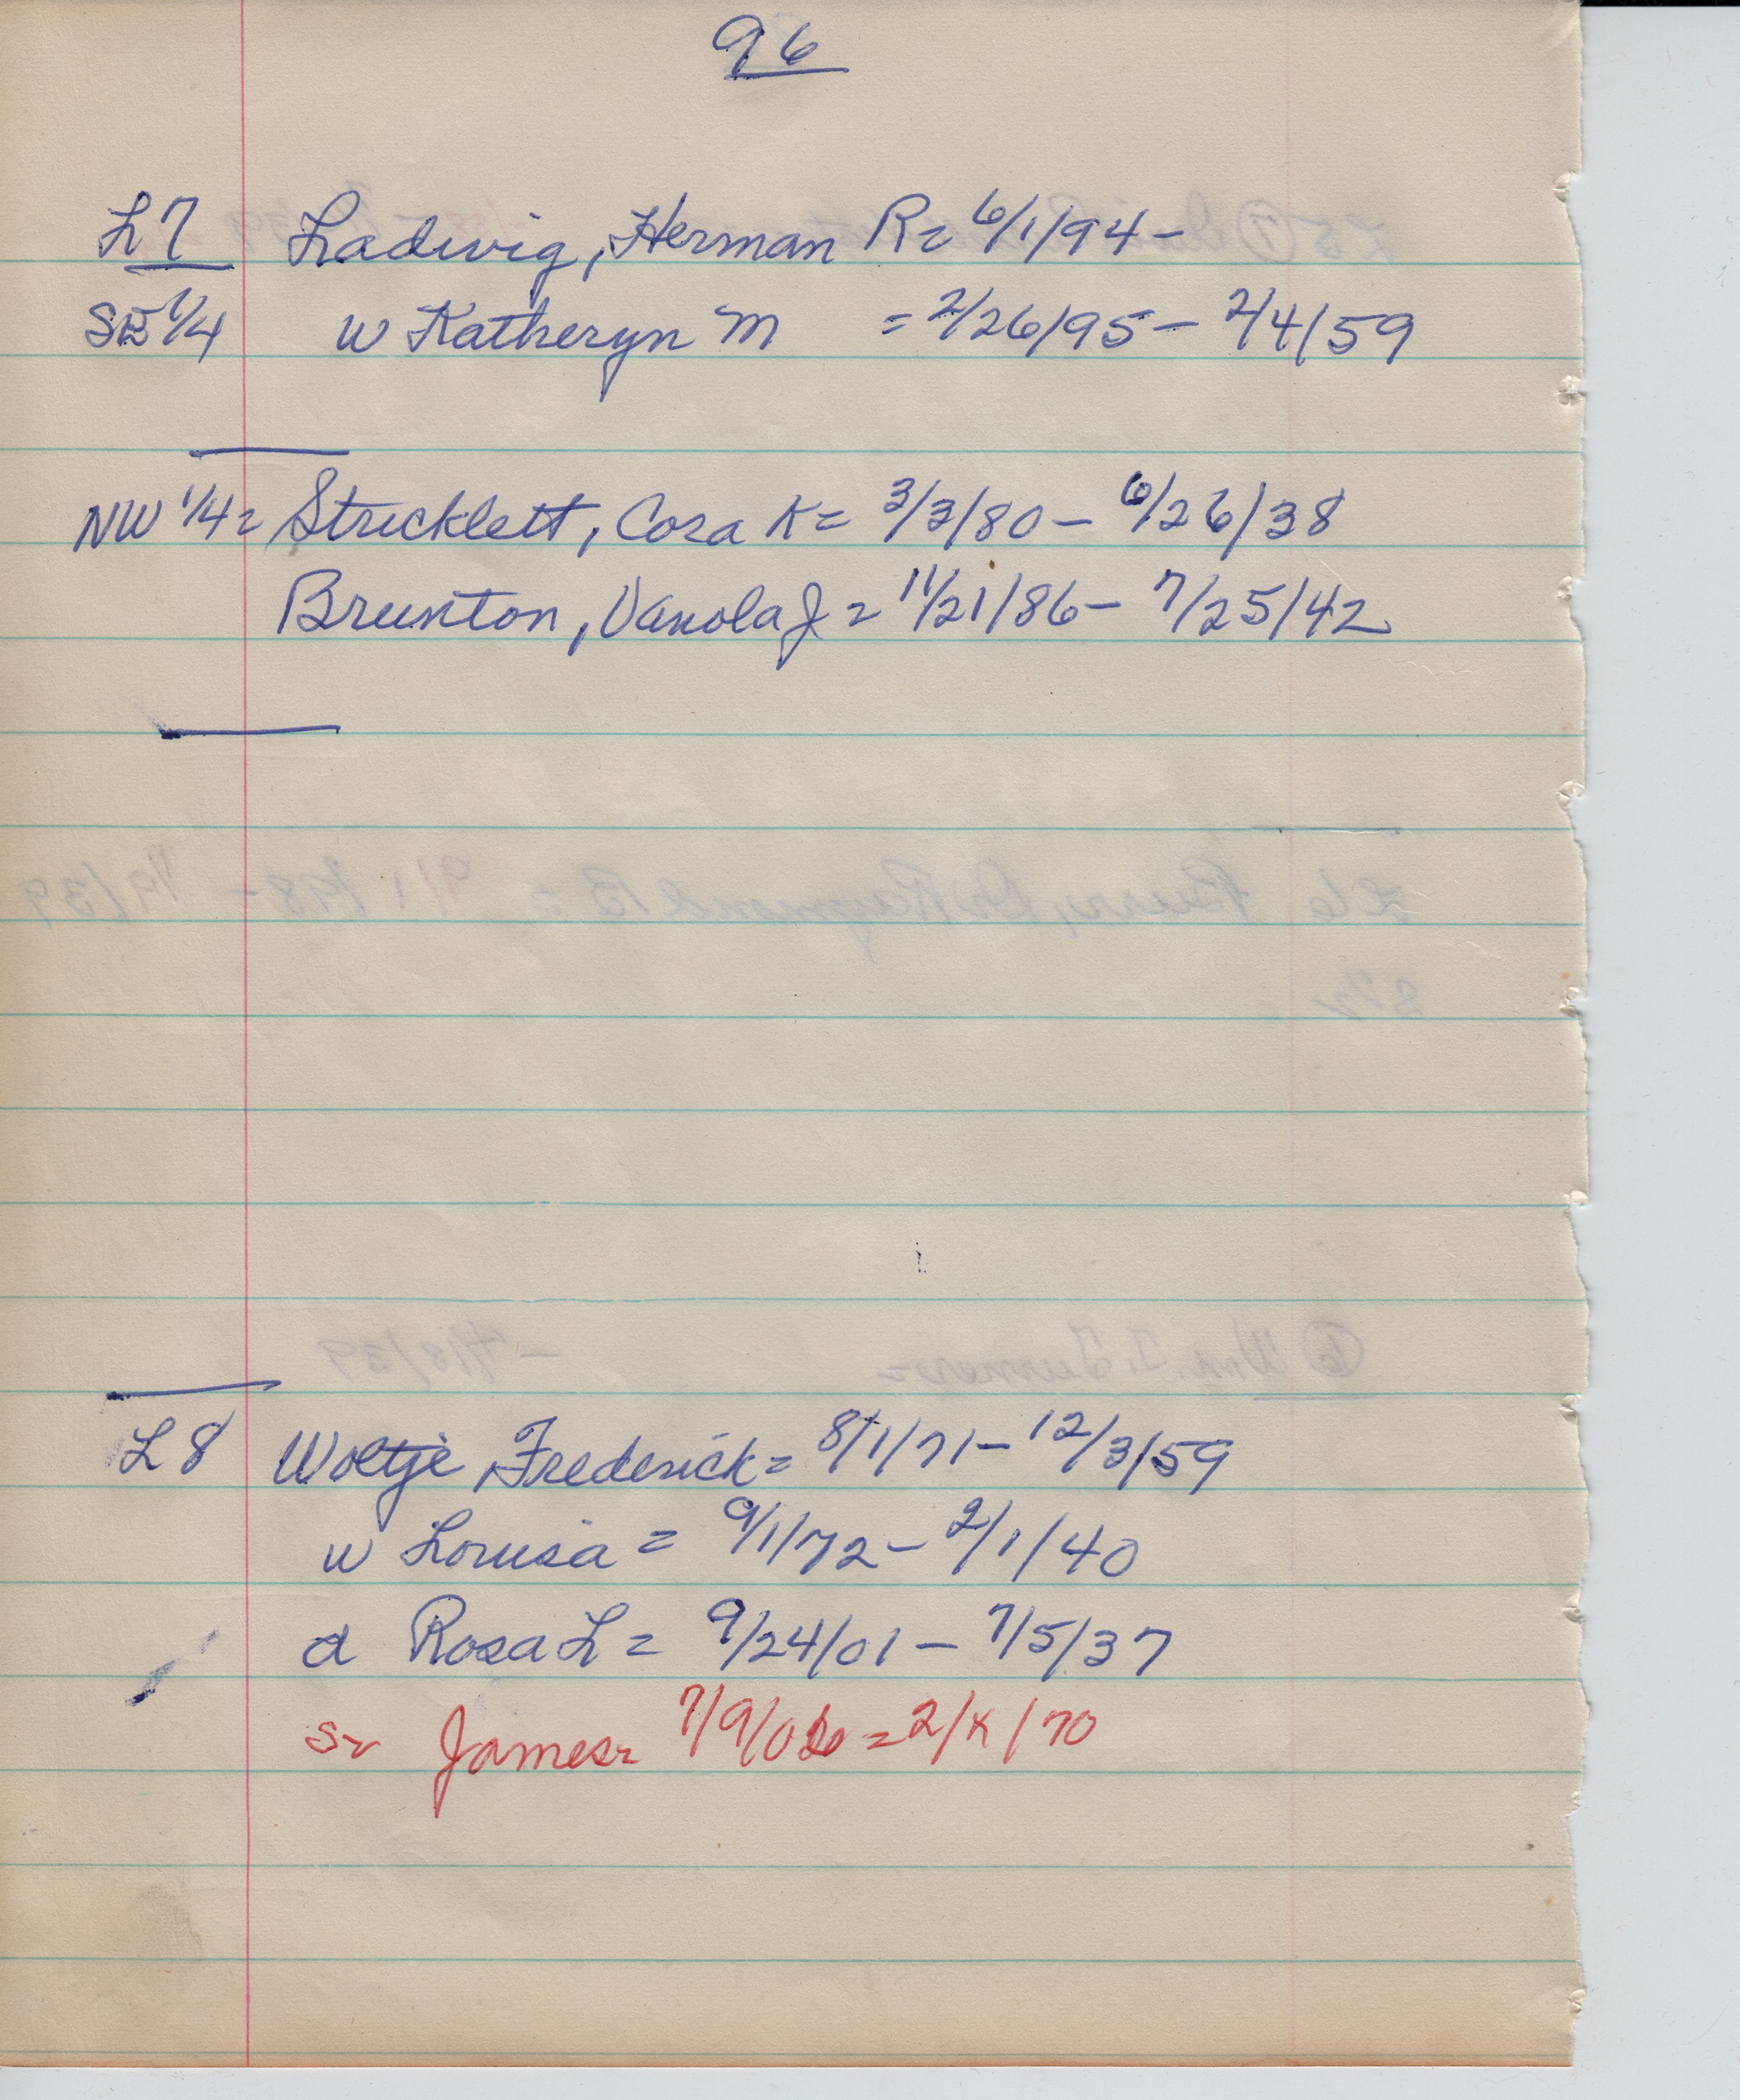 96
L7 Ladwig, Herman R = 6/1/94 -
SE 1/4 w Katheryn M = 2/26/95 - 2/4/59
NW 1/4 = Stricklett, Cora K = 3/3/80 - 6/26/38
Brunton, Vanola J = 11/21/86 - 7/25/42
L8 Woltje, Frederick = 8/1/71 - 12/3/59
w Louisa = 9/1/72 - 2/1/40
d Rosa L = 9/24/01 - 7/5/37
s = James = 7/9/06 = 2/x/70